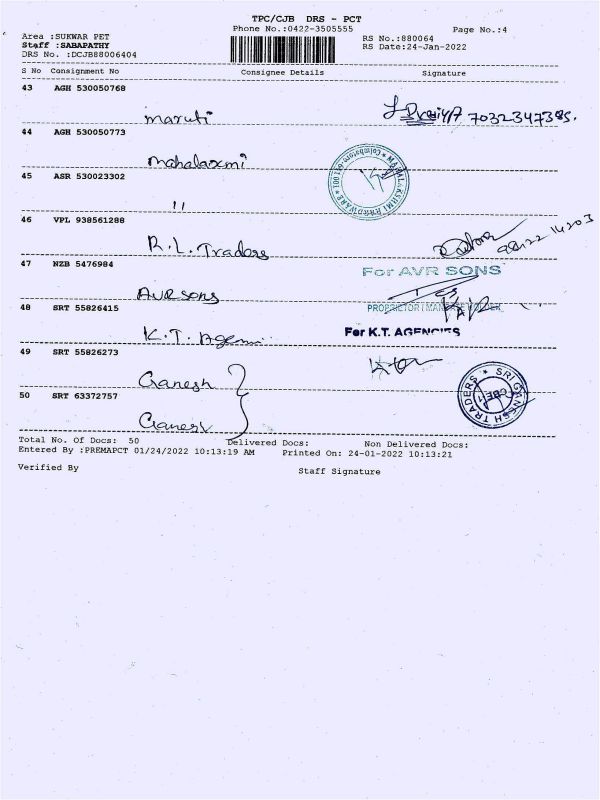 TPC/CJB DRS - PCT
Phone No.:0422-3505555
Page No.:4
Area :SUKWAR PET
RS No.:880064
Staff :SABAPATHY
RS Date:24-Jan-2022
DRS No. :DCJB88006404
S No Consignment No Consignee Details Signature
43 AGH 530050768
maruti
7032347385.
44 AGH 530050773
mahalaxmi
MAHALAKSHMI HARDWARE * Coimbatore-641 001 *
45 ASR 530023302
11
46 VPL 938561288
R.L. Traders
47 NZB 5476984
For AVR SONS
AVR sons
PROPRIETOR / MANAGER
48 SRT 55826415
K.T. Agen
For K.T. AGENCIES
49 SRT 55826273
Ganesh
SRI GANESH TRADERS * CBE-1 *
50 SRT 63372757
Ganesh
Total No. Of Docs: 50 Delivered Docs: Non Delivered Docs:
Entered By :PREMAPCT 01/24/2022 10:13:19 AM Printed On: 24-01-2022 10:13:21
Verified By Staff Signature